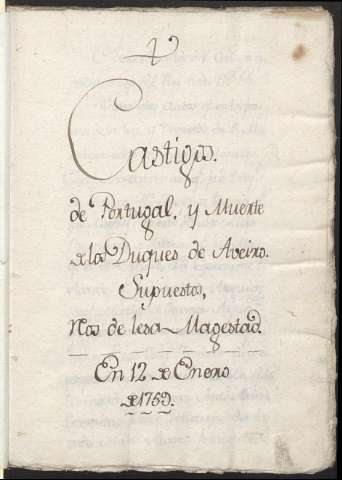 Castigos.
de Portugal, y Muerte
de los Duques de Aveiro.
Supuestos,
Reos de lesa Magestad.
En 12 de Enero
de 1759.